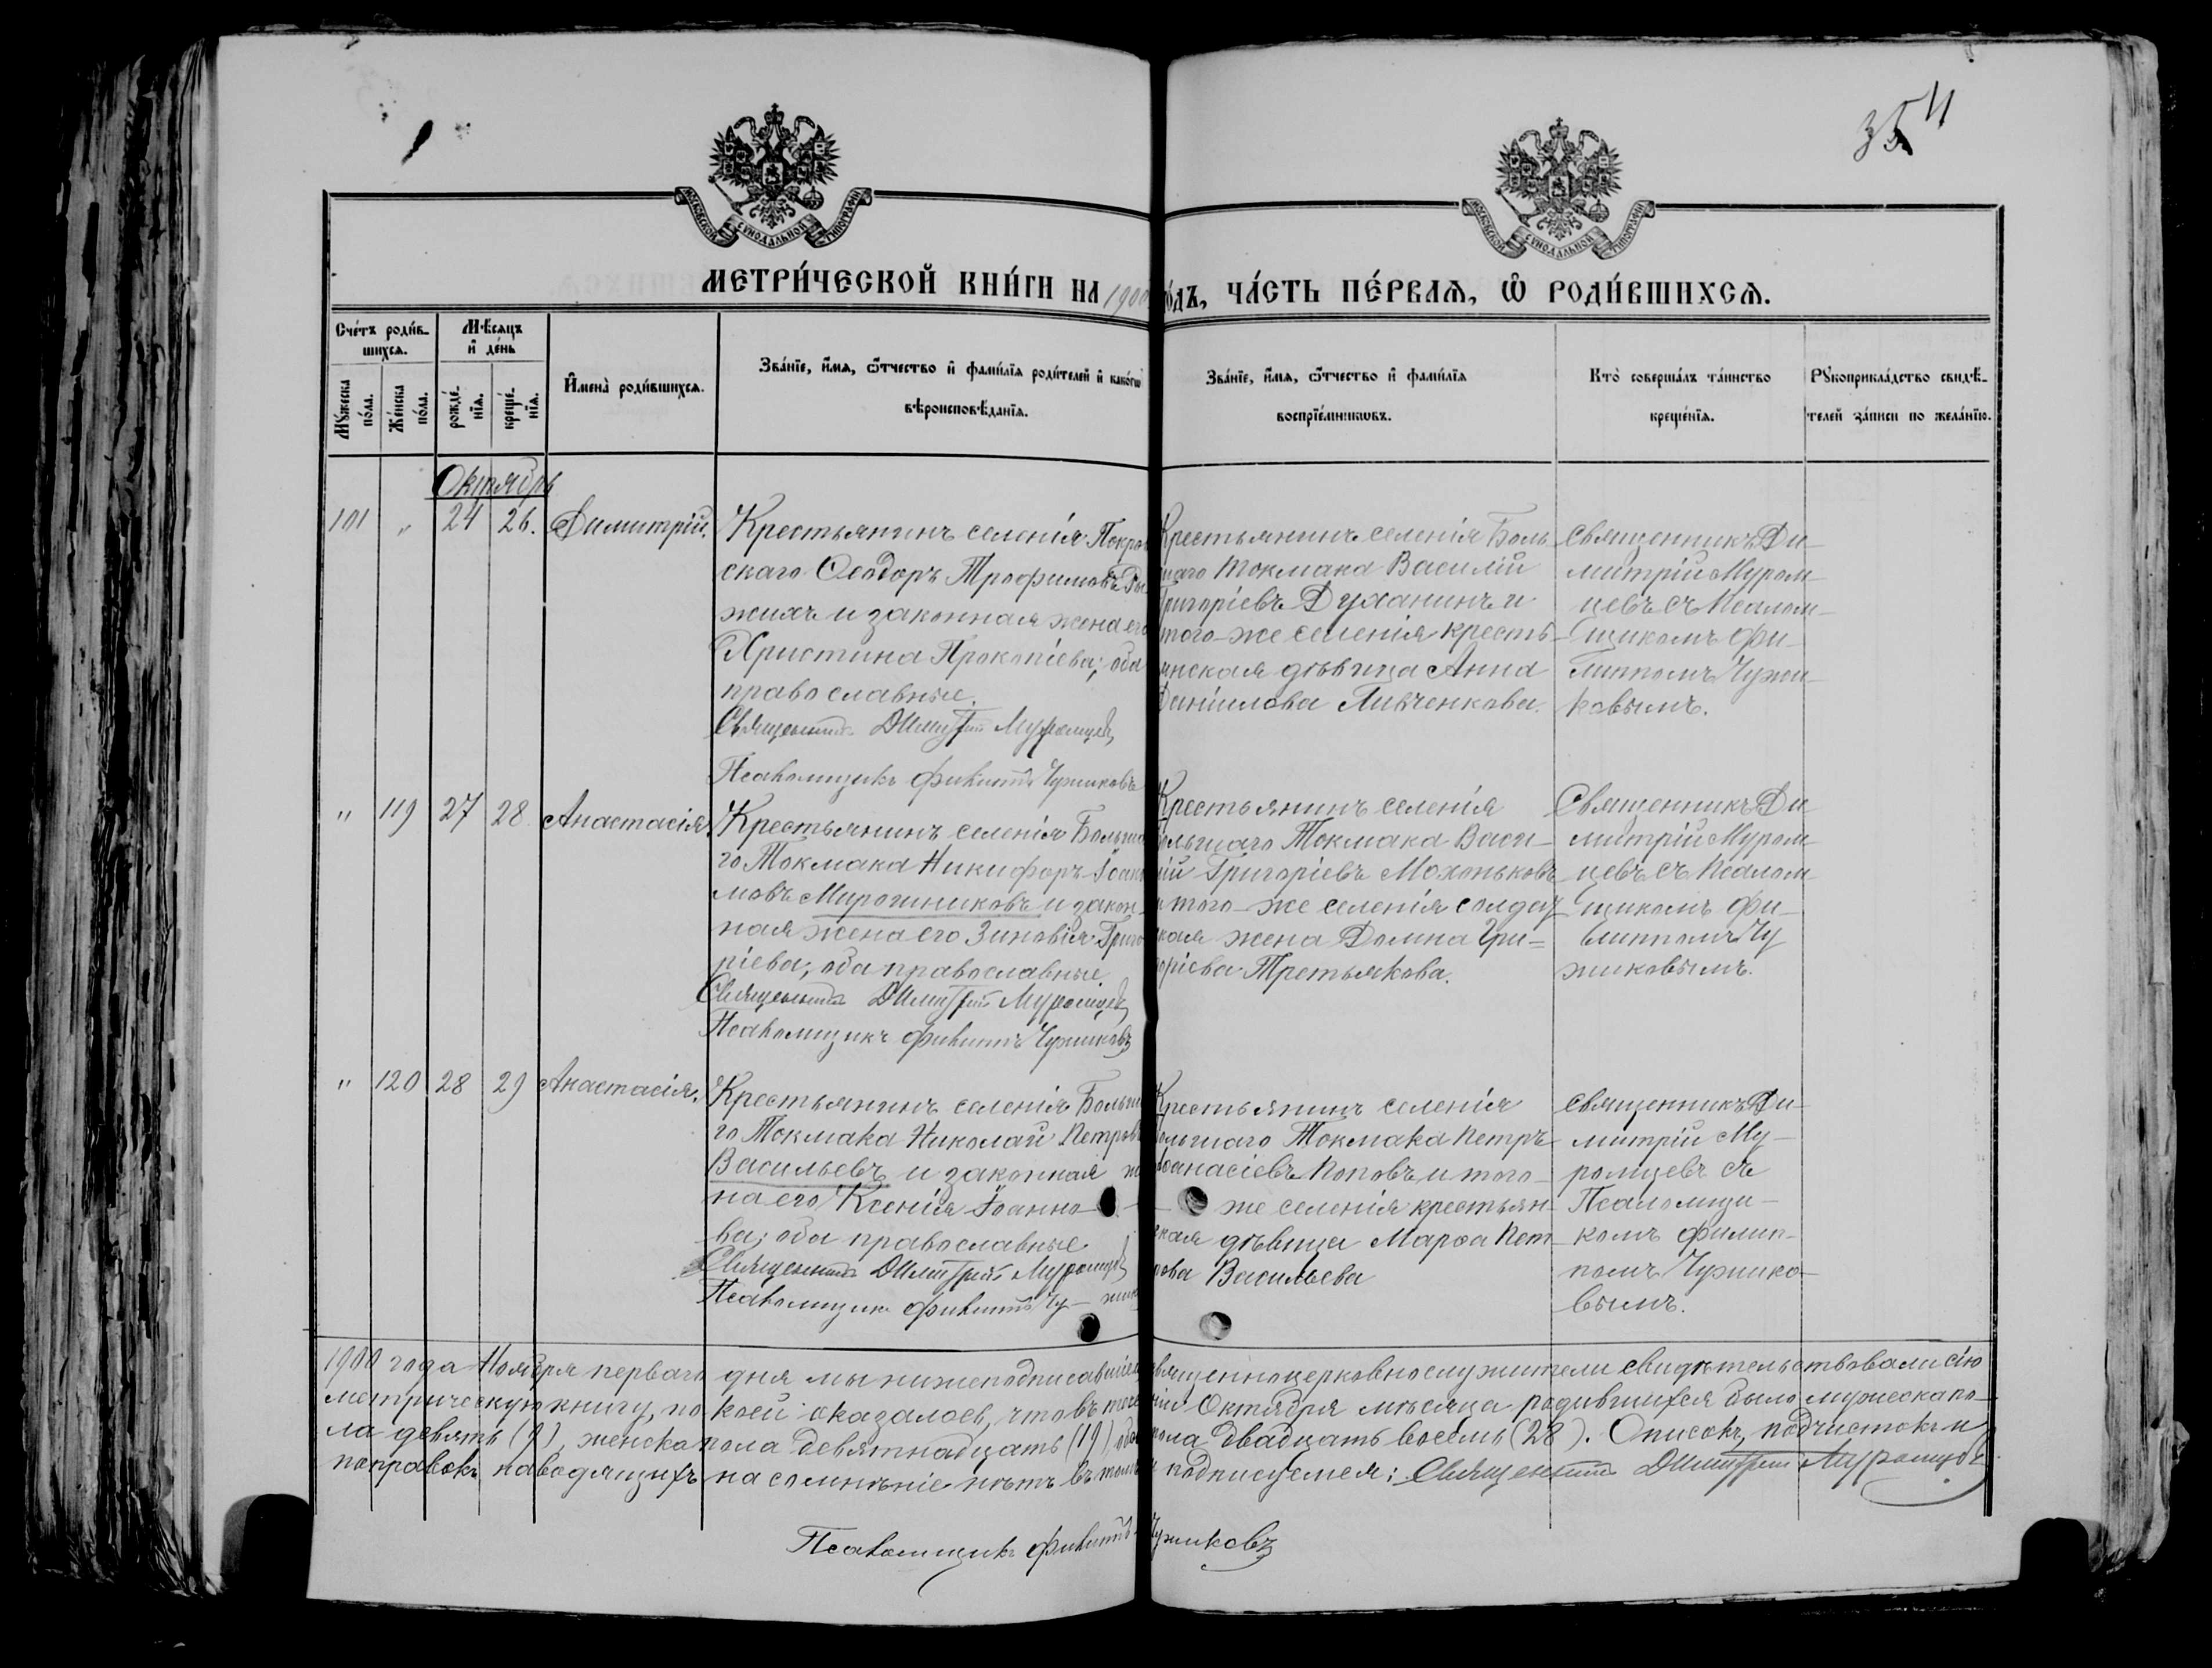 354
МОСКОВСКОЙ СѴНОДАЛЬНОЙ ТИПОГРАФІИ
МОСКОВСКОЙ СѴНОДАЛЬНОЙ ТИПОГРАФІИ
МЕТРИ́ЧЕСКОЙ КНИ́ГИ НА 1900 го́дъ, ЧА́СТЬ ПЕ́РВАѦ, Ѡ РОДИ́ВШИХСѦ.
Сче́тъ роди́в-
шихсѧ.
Мꙋ́жеска по́ла.
Же́нска по́ла.
Мѣ́сѧцъ
и де́нь
рожде́-
нїѧ.
креще́-
нїѧ.
Имена̀ роди́вшихсѧ.
Зва́нїе, и́мѧ, ѻ́тчество и фами́лїѧ роди́телей и како́гѡ
вѣроисповѣ́данїѧ.
Зва́нїе, и́мѧ, ѻ́тчество и фами́лїѧ
воспрїе́мникѡвъ.
Кто̀ соверша́лъ та́инство
креще́нїѧ.
Рꙋкоприкла́дство свидѣ́-
телей за́писи по жела́нїю.
Октябрь
101 " 24 26. Димитрій.
Крестьянинъ селенія Покров
скаго Ѳеодоръ Трофимовъ
жихъ и законная жена его
Христина Прокопіева; оба
православные.
Священникъ Димитрій Муромцевъ
Псаломщикъ Филиппъ Чужиковъ
Крестьянинъ селенія Боль-
шаго Токмака Василій
Григоріевъ Духанинъ и
того-же селенія кресть-
янская дѣвица Анна
Даніилова Ливченкова.
Священникъ Ди-
митрій Муром-
цевъ съ Псалом-
щикомъ Фи-
липпомъ Чужи-
ковымъ.
" 119 27 28 Анастасія
Крестьянинъ селенія Больша
го Токмака Никифоръ Іоан
новъ Мирошниковъ и закон-
ная жена его Зиновія Григо
ріева; оба православные
Священникъ Димитрій Муромцевъ
Псаломщикъ Филиппъ Чужиковъ
Крестьянинъ селенія
Большаго Токмака Васи-
лій Григоріевъ Мохоньковъ
и того-же селенія солдат
ская жена Домна Гри=
горіева Третьякова.
Священникъ Ди
митрій Муром-
цевъ съ Псалом
щикомъ Фи-
липпомъ Чу
жиковымъ.
" 120 28 29 Анастасія.
Крестьянинъ селенія Больша
го Токмака Николай Петровъ
Васильевъ и законная же
на его Ксенія Іоанно-
ва; оба православные
Священникъ Димитрій Муромцевъ
Псаломщикъ Филиппъ Чу-жик
Крестьянинъ селенія
Большаго Токмака Петръ
Аѳанасіевъ Поповъ и того-
же селенія крестьян-
ская дѣвица Марѳа Пет-
рова Васильева
Священникъ Ди-
митрій Му-
ромцевъ съ
Псаломщи-
комъ Филип-
помъ Чужико-
вымъ.
1900 года Ноября перваго дня мы нижеподписавшіеся священноцерковнослужители свидѣтельствовали сію
метрическую книгу, по коей оказалось, что въ теченіи Октября мѣсяца родившихся было мужеска по-
ла девять (9), женска пола девятнадцать (19), обоего пола двадцать восемь (28). Описокъ, подчистокъ и
поправокъ наводящихъ на сомнѣніе нѣтъ въ томъ и подписуемся: Священникъ Димитрій Муромцевъ
Псаломщикъ Филиппъ Чужиковъ